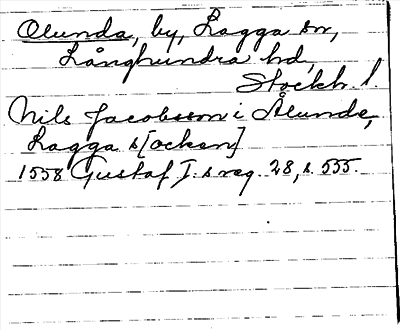 Ålunda, by, Lagga sn,
Långhundra hd,
Stockh. l
Nils Jacobsson i Ålunda,
Lagga s[ocken]
1558 Gustaf I.s reg. 28, s. 555.